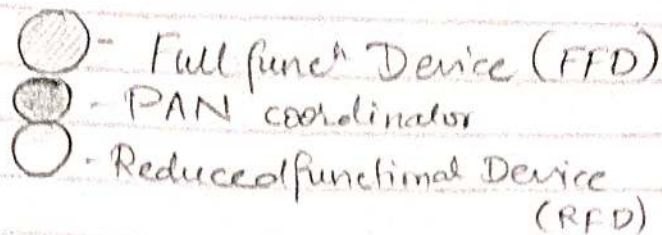 - Full funcⁿ Device (FFD)
- PAN coordinator
- Reduced functional Device
(RFD)